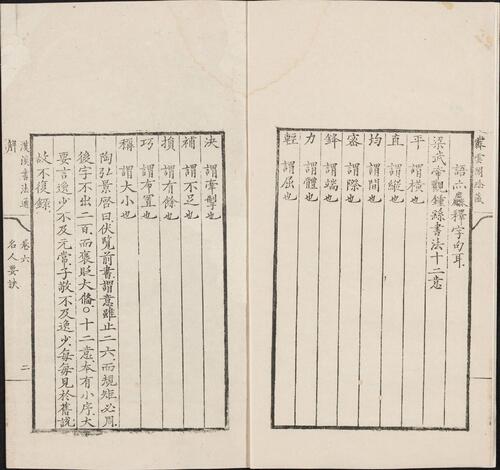 霽雲閣藏
語亦屬釋字句耳
梁武帝觀鍾繇書法十二意
平 謂橫也
直 謂縱也
均 謂間也
密 謂際也
鋒 謂端也
力 謂體也
輕 謂屈也
決 謂牽掣也
補 謂不足也
損 謂有餘也
巧 謂布置也
稱 謂大小也
陶弘景啓曰伏覽前書謂意雖止二六而規矩必周
後字不出二百而褒貶大備○十二意本有小序大
要言逸少不及元常子敬不及逸少每每見於舊說
故不復錄
漢溪書法通解 卷六 名人要訣 二